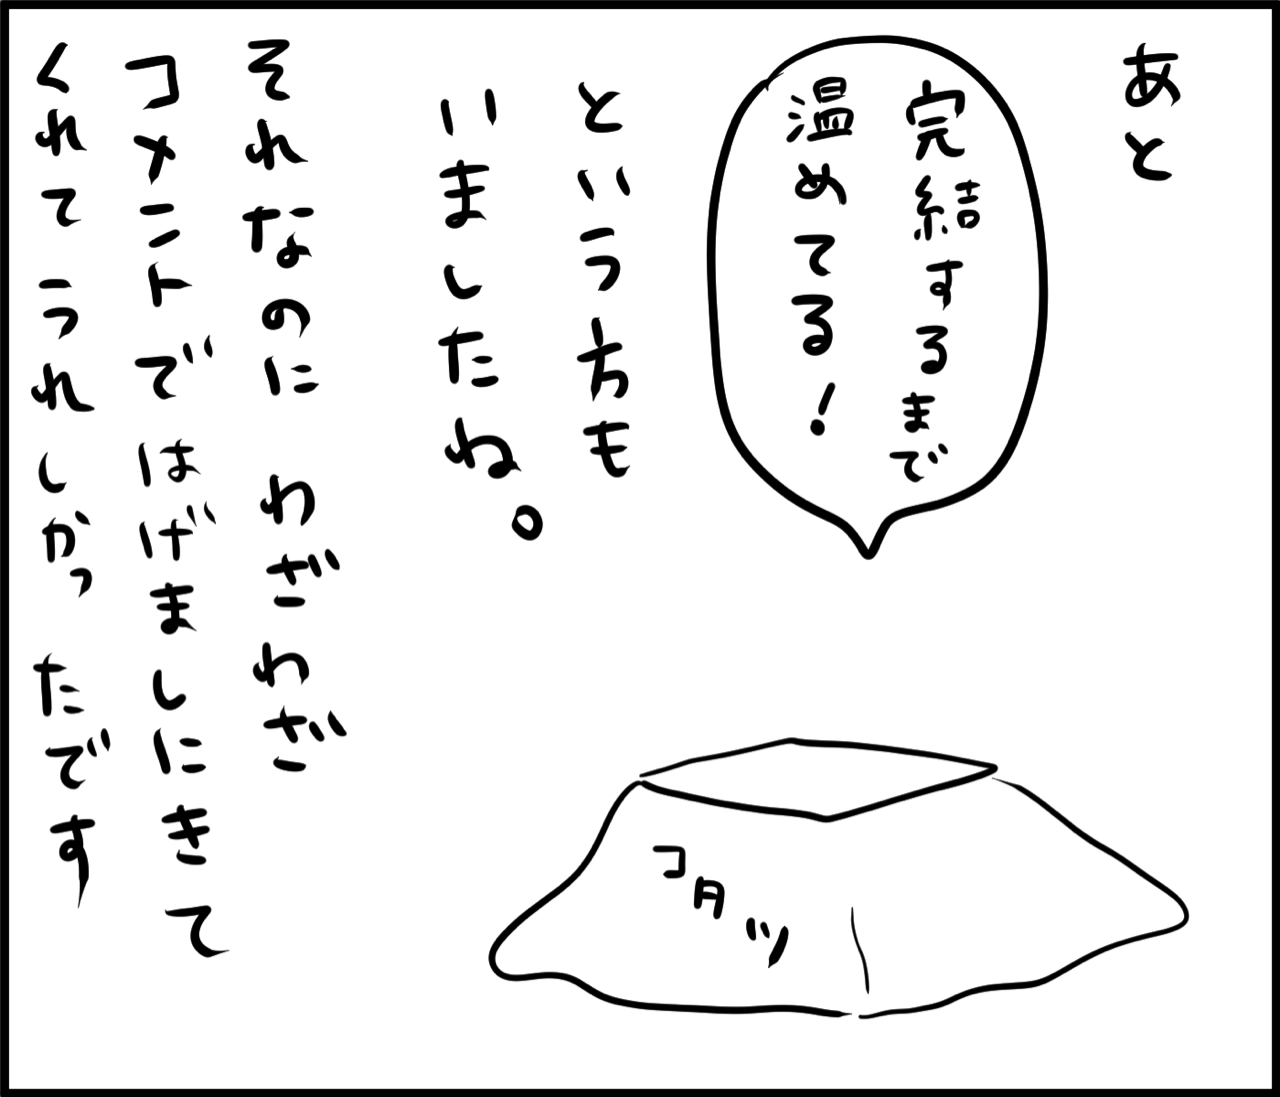 あと
完結するまで
温めてる！
という方も
いましたね。
それなのに わざわざ
コメントではげましにきて
くれてうれしかったです
コタツ